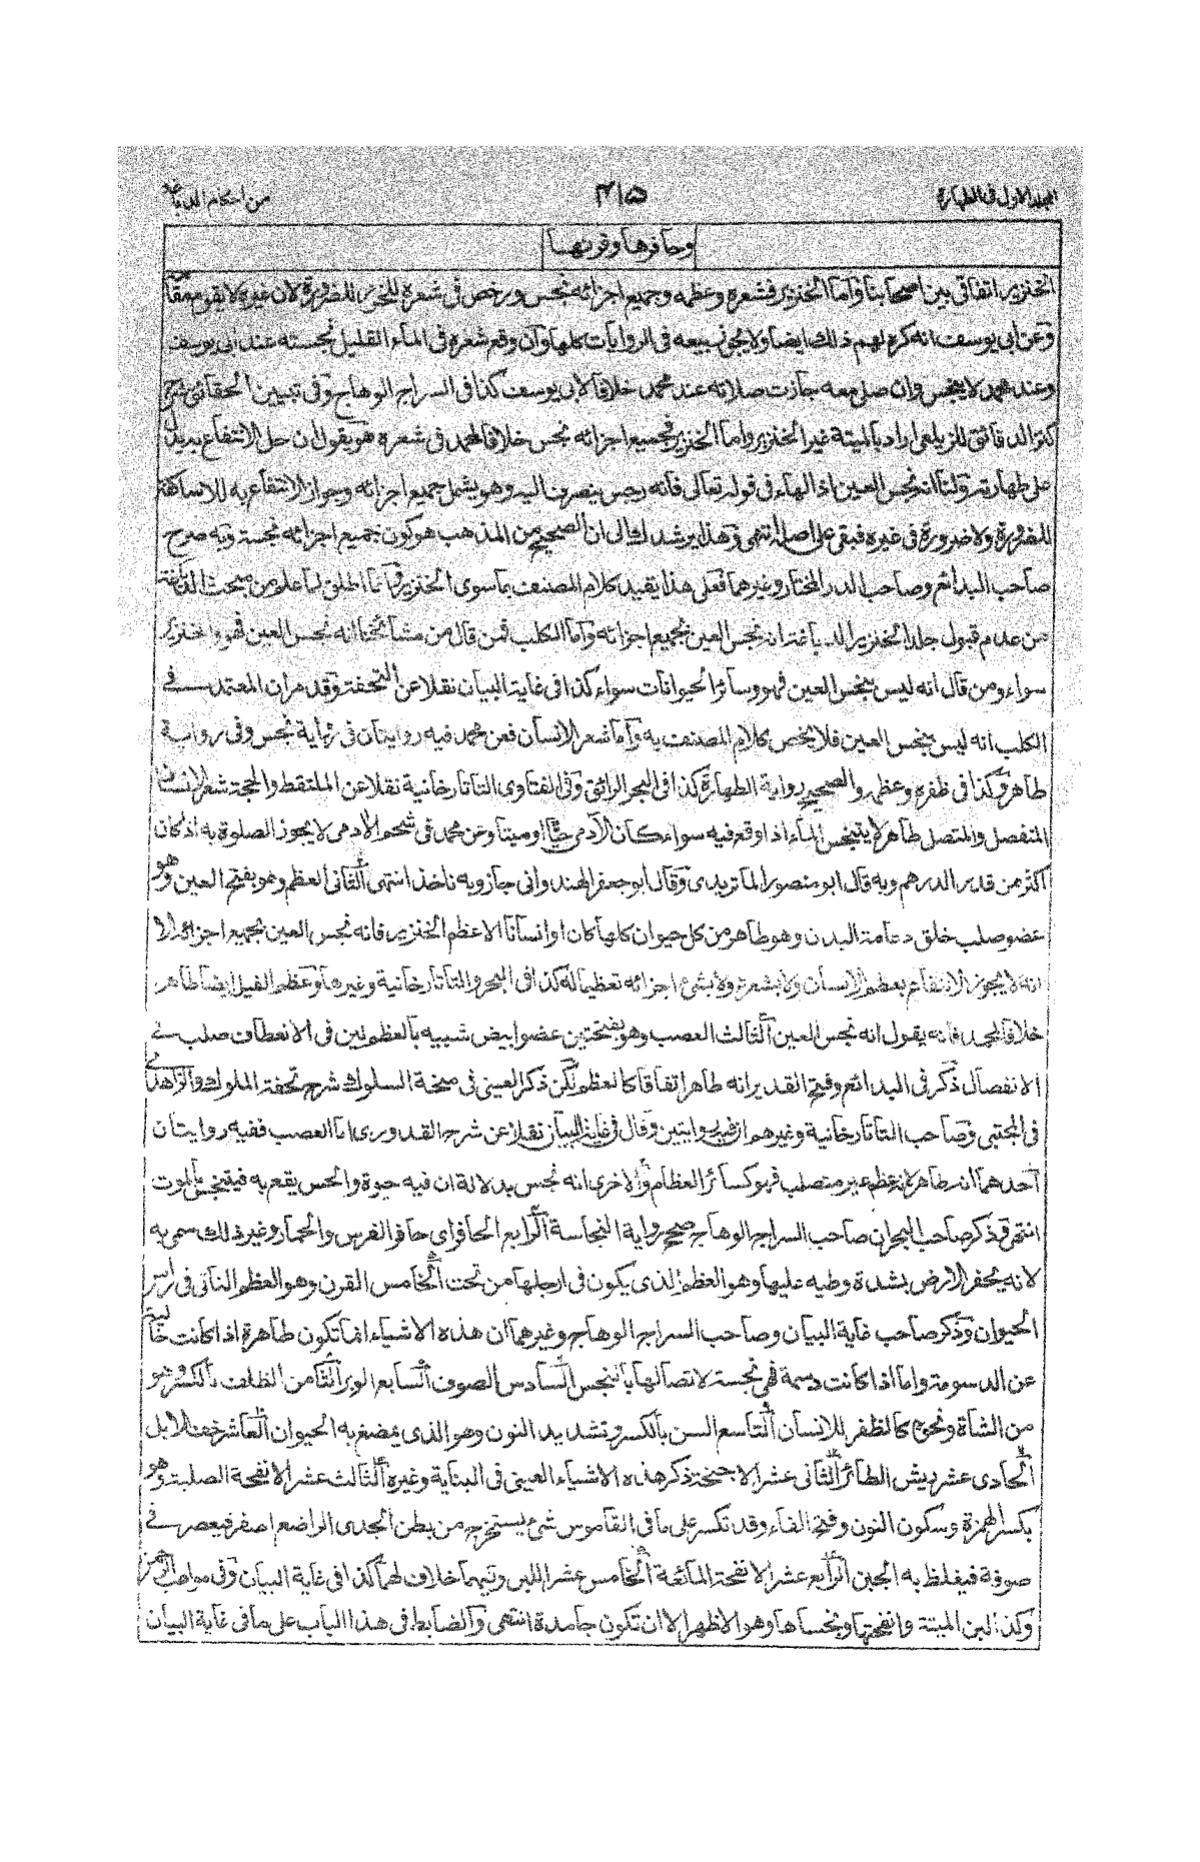 المجلد الاول فى الطهارة ٤١٥ من احكام الدباغة
وحافرها وقرنها
الخنزير اتفاقى بين اصحابنا واما الخنزير فشعره وعظمه وجميع اجزائه نجس ورخص فى شعره للخرز للضرورة لان غيره لا يقوم مقامه
وعن ابى يوسف انه كره لهم ذلك ايضا ولا يجوز بيعه فى الروايات كلها وان وقع شعره فى الماء القليل نجسته عند ابى يوسف
وعند محمد لا ينجس وان صلى معه جازت صلاته عند محمد خلافا لابى يوسف كذا فى السراج الوهاج وفى تبيين الحقائق شرح
كنز الدقائق للزيلعى اراد بالميتة غير الخنزير واما الخنزير فجميع اجزائه نجس خلافا لمحمد فى شعره هو يقول ان حل الانتفاع يدل
على طهارته ولنا انه نجس العين اذ الهاء فى قوله تعالى فانه رجس ينصرف اليه وهو يشمل جميع اجزائه وجواز الانتفاع به للاساكفة
للضرورة ولا ضرورة فى غيره فبقى على اصله انتهى وهذا يرشدك الى ان الصحيح من المذهب هو كون جميع اجزائه نجسة وبه صرح
صاحب البدائع وصاحب الدر المختار وغيرهما فعلى هذا يقيد كلام المصنف بما سوى الخنزير وانما اطلق لما علم من مبحث الدباغة
من عدم قبول جلد الخنزير الدباغة انه نجس العين بجميع اجزائه واما الكلب فمن قال من مشائخنا انه نجس العين فهو والخنزير
سواء ومن قال انه ليس بنجس العين فهو وسائر الحيوانات سواء كذا فى غاية البيان نقلا عن التحفة وقد مر ان المعتمد فى
الكلب انه ليس بنجس العين فلا يخص كلام المصنف به واما شعر الانسان فعن محمد فيه روايتان فى رواية نجس وفى رواية
طاهر وكذا فى ظفره وعظمه والصحيح رواية الطهارة كذا فى البحر الرائق وفى الفتاوى التاتارخانية نقلا عن الملتقط والحجة شعر الانسان
المنفصل والمتصل طاهر لا يتنجس الماء اذا وقع فيه سواء كان الآدمى حيا او ميتا وعن محمد فى شحم الآدمى لا يجوز الصلوة به اذا كان
اكثر من قدر الدرهم وبه قال ابو منصور الماتريدى وقال ابو جعفر الهندوانى جاز وبه ناخذ انتهى الثانى العظم وهو بفتح العين وهو
عضو صلب خلق دعامة البدن وهو طاهر من كل حيوان كلبا كان او انسانا الا عظم الخنزير فانه نجس العين بجميع اجزائه الا
انه لا يجوز الانتفاع بعظم الانسان ولا بشعره ولا بشئ اجزائه تعظيما له كذا فى البحر والتاتارخانية وغيرها وعظم الفيل ايضا طاهر
خلافا لمحمد فانه يقول انه نجس العين الثالث العصب وهو بفتحتين عضو ابيض شبيه بالعظم لين فى الانعطاف صلب فى
الانفصال ذكر فى البدائع وفتح القدير انه طاهر اتفاقا كالعظم لكن ذكر العينى فى منحة السلوك شرح تحفة الملوك والزاهدى
فى المجتبى وصاحب التاتارخانية وغيرهم ان فيه روايتين وقال فى غاية البيان نقلا عن شرح القدورى اما العصب ففيه روايتان
احدهما انه طاهر لانه عظم غير متصلب فهو كسائر العظام والاخرى انه نجس بدلالة ان فيه حيوة والحس يقع به فيتنجس بالموت
انتهى وذكر صاحب البحر ان صاحب السراج الوهاج صحح رواية النجاسة الرابع الحافر اى حافر الفرس والحمار وغير ذلك سمى به
لانه يحفر الارض بشدة وطيه عليها وهو العظم الذى يكون فى ارجلها من تحت الخامس القرن وهو العظم الناتى فى راس
الحيوان وذكر صاحب غاية البيان وصاحب السراج الوهاج وغيرهما ان هذه الاشياء انما تكون طاهرة اذا كانت خالية
عن الدسومة واما اذا كانت دسمة فهى نجسة لاتصالها بالنجس السادس الصوف السابع الوبر الثامن الظلف بالكسر وهو
من الشاة ونحوه كالظفر للانسان التاسع السن بالكسر وتشديد النون وهو الذى يمضغ به الحيوان العاشر خف للابل
الحادى عشر ريش الطائر الثانى عشر الاجنحة ذكر هذه الاشياء العينى فى البناية وغيره الثالث عشر الانفحة الصلبة وهو
بكسر الهمزة وسكون النون وفتح الفاء وقد تكسر على ما فى القاموس شئ يستخرج من بطن الجدى الراضع اصفر فيعصر فى
صوفة فيغلظ به الجبن الرابع عشر الانفحة المائعة الخامس عشر اللبن وفيهما خلاف لهما كذا فى غاية البيان وفى مواهب الرحمن
وكذا لبن الميتة وانفحتها ونجساها وهو الاظهر الا ان تكون جامدة انتهى والضابط فى هذا الباب على ما فى غاية البيان